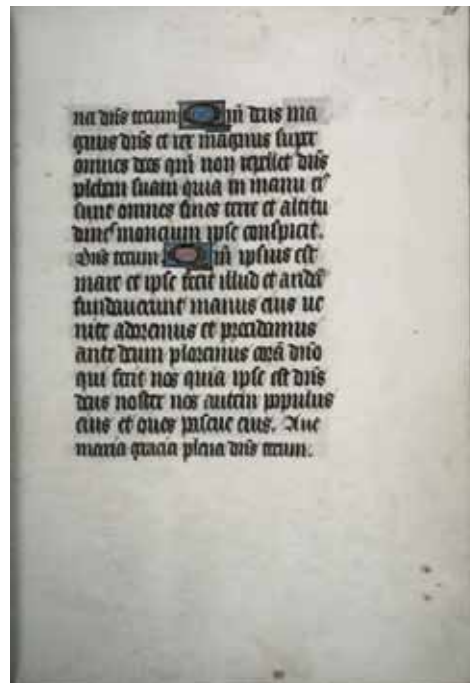 na dñs tecum Qm̄ deus ma
gnus dñs et rex magnus super
omnes deos qm̄ non repellet dñs
plebem suam quia in manu eꝰ
sunt omnes fines terre et altitu
dineˢ moncium ipse conspicit.
Dñs tecum Qm̄ ipsius est
mare et ipse fecit illud et aridā
fundauerunt manus eius ue
nite adoremus et procidamus
ante deum ploremus corā dño
qui fecit nos quia ipse est dñs
deus noster nos autem populus
eius et oues pascue eius. Aue
maria gracia plena dñs tecum.